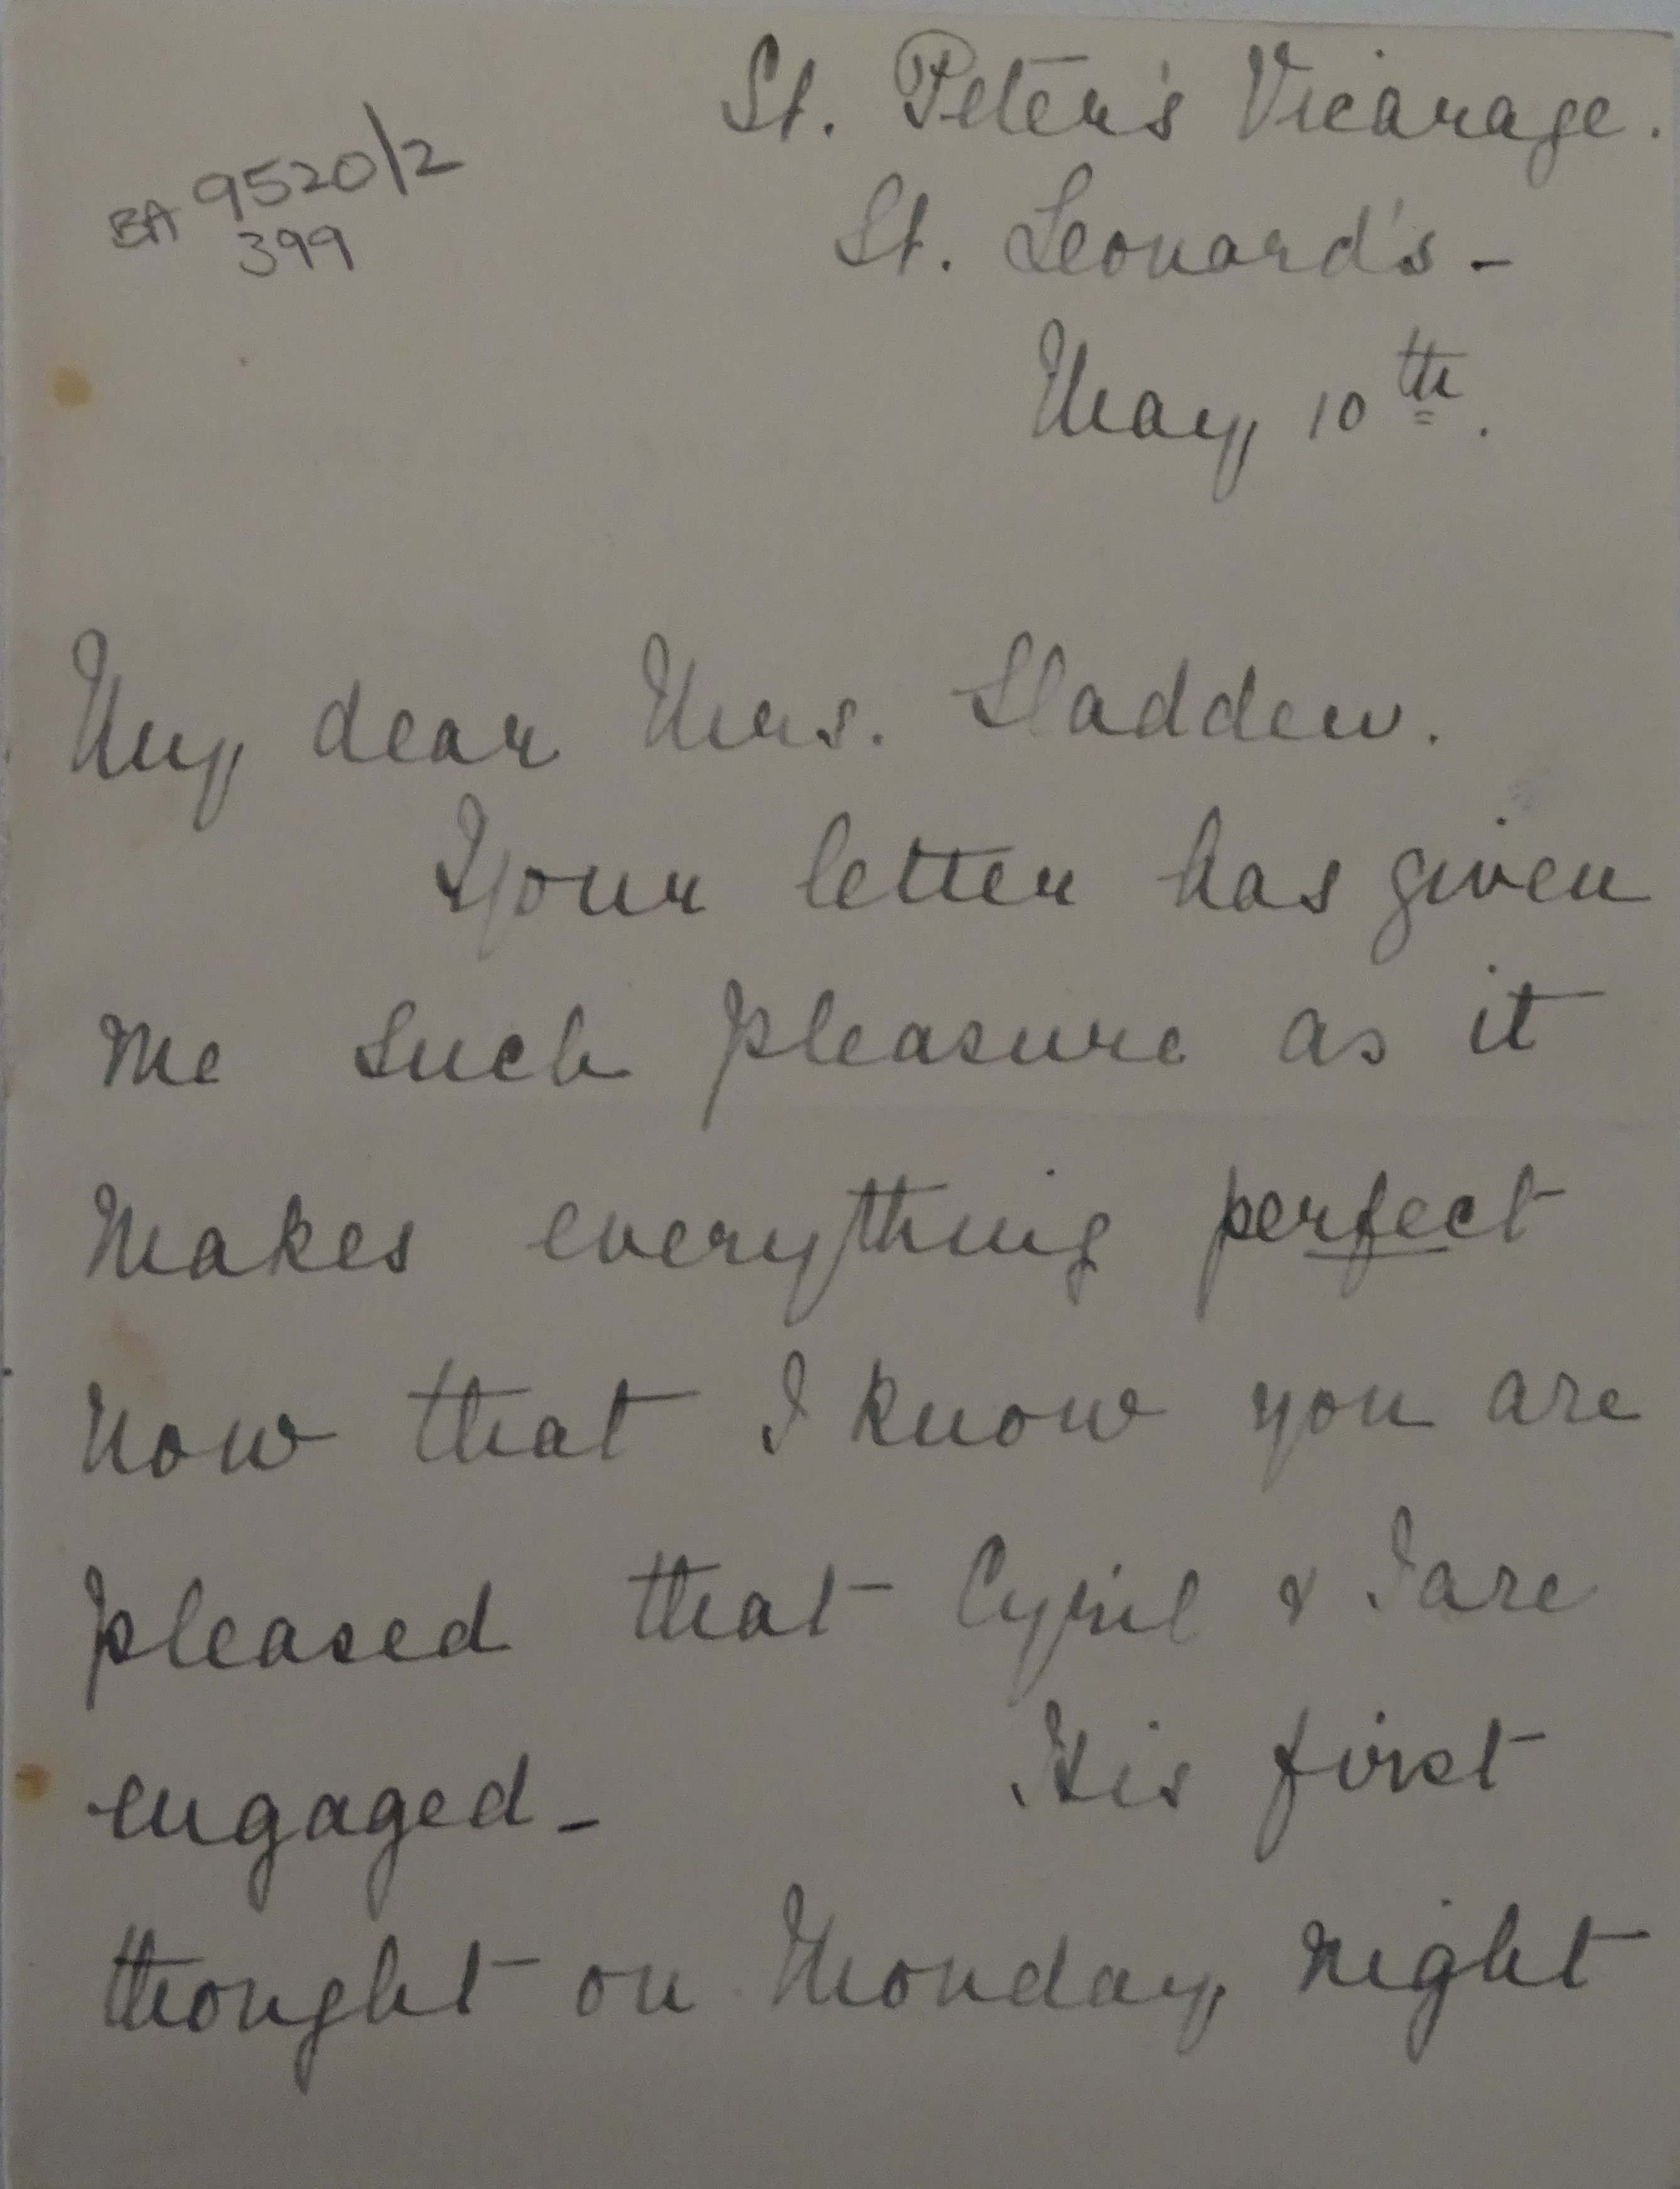 St. Peter's Vicarage.
BA 9520/2
399
St. Leonard's -
May 10th.
My dear Mrs. Sladden.
Your letter has given
me such pleasure as it
makes everything perfect
now that I know you are
pleased that Cyril & I are
engaged - His first
thought on Monday night